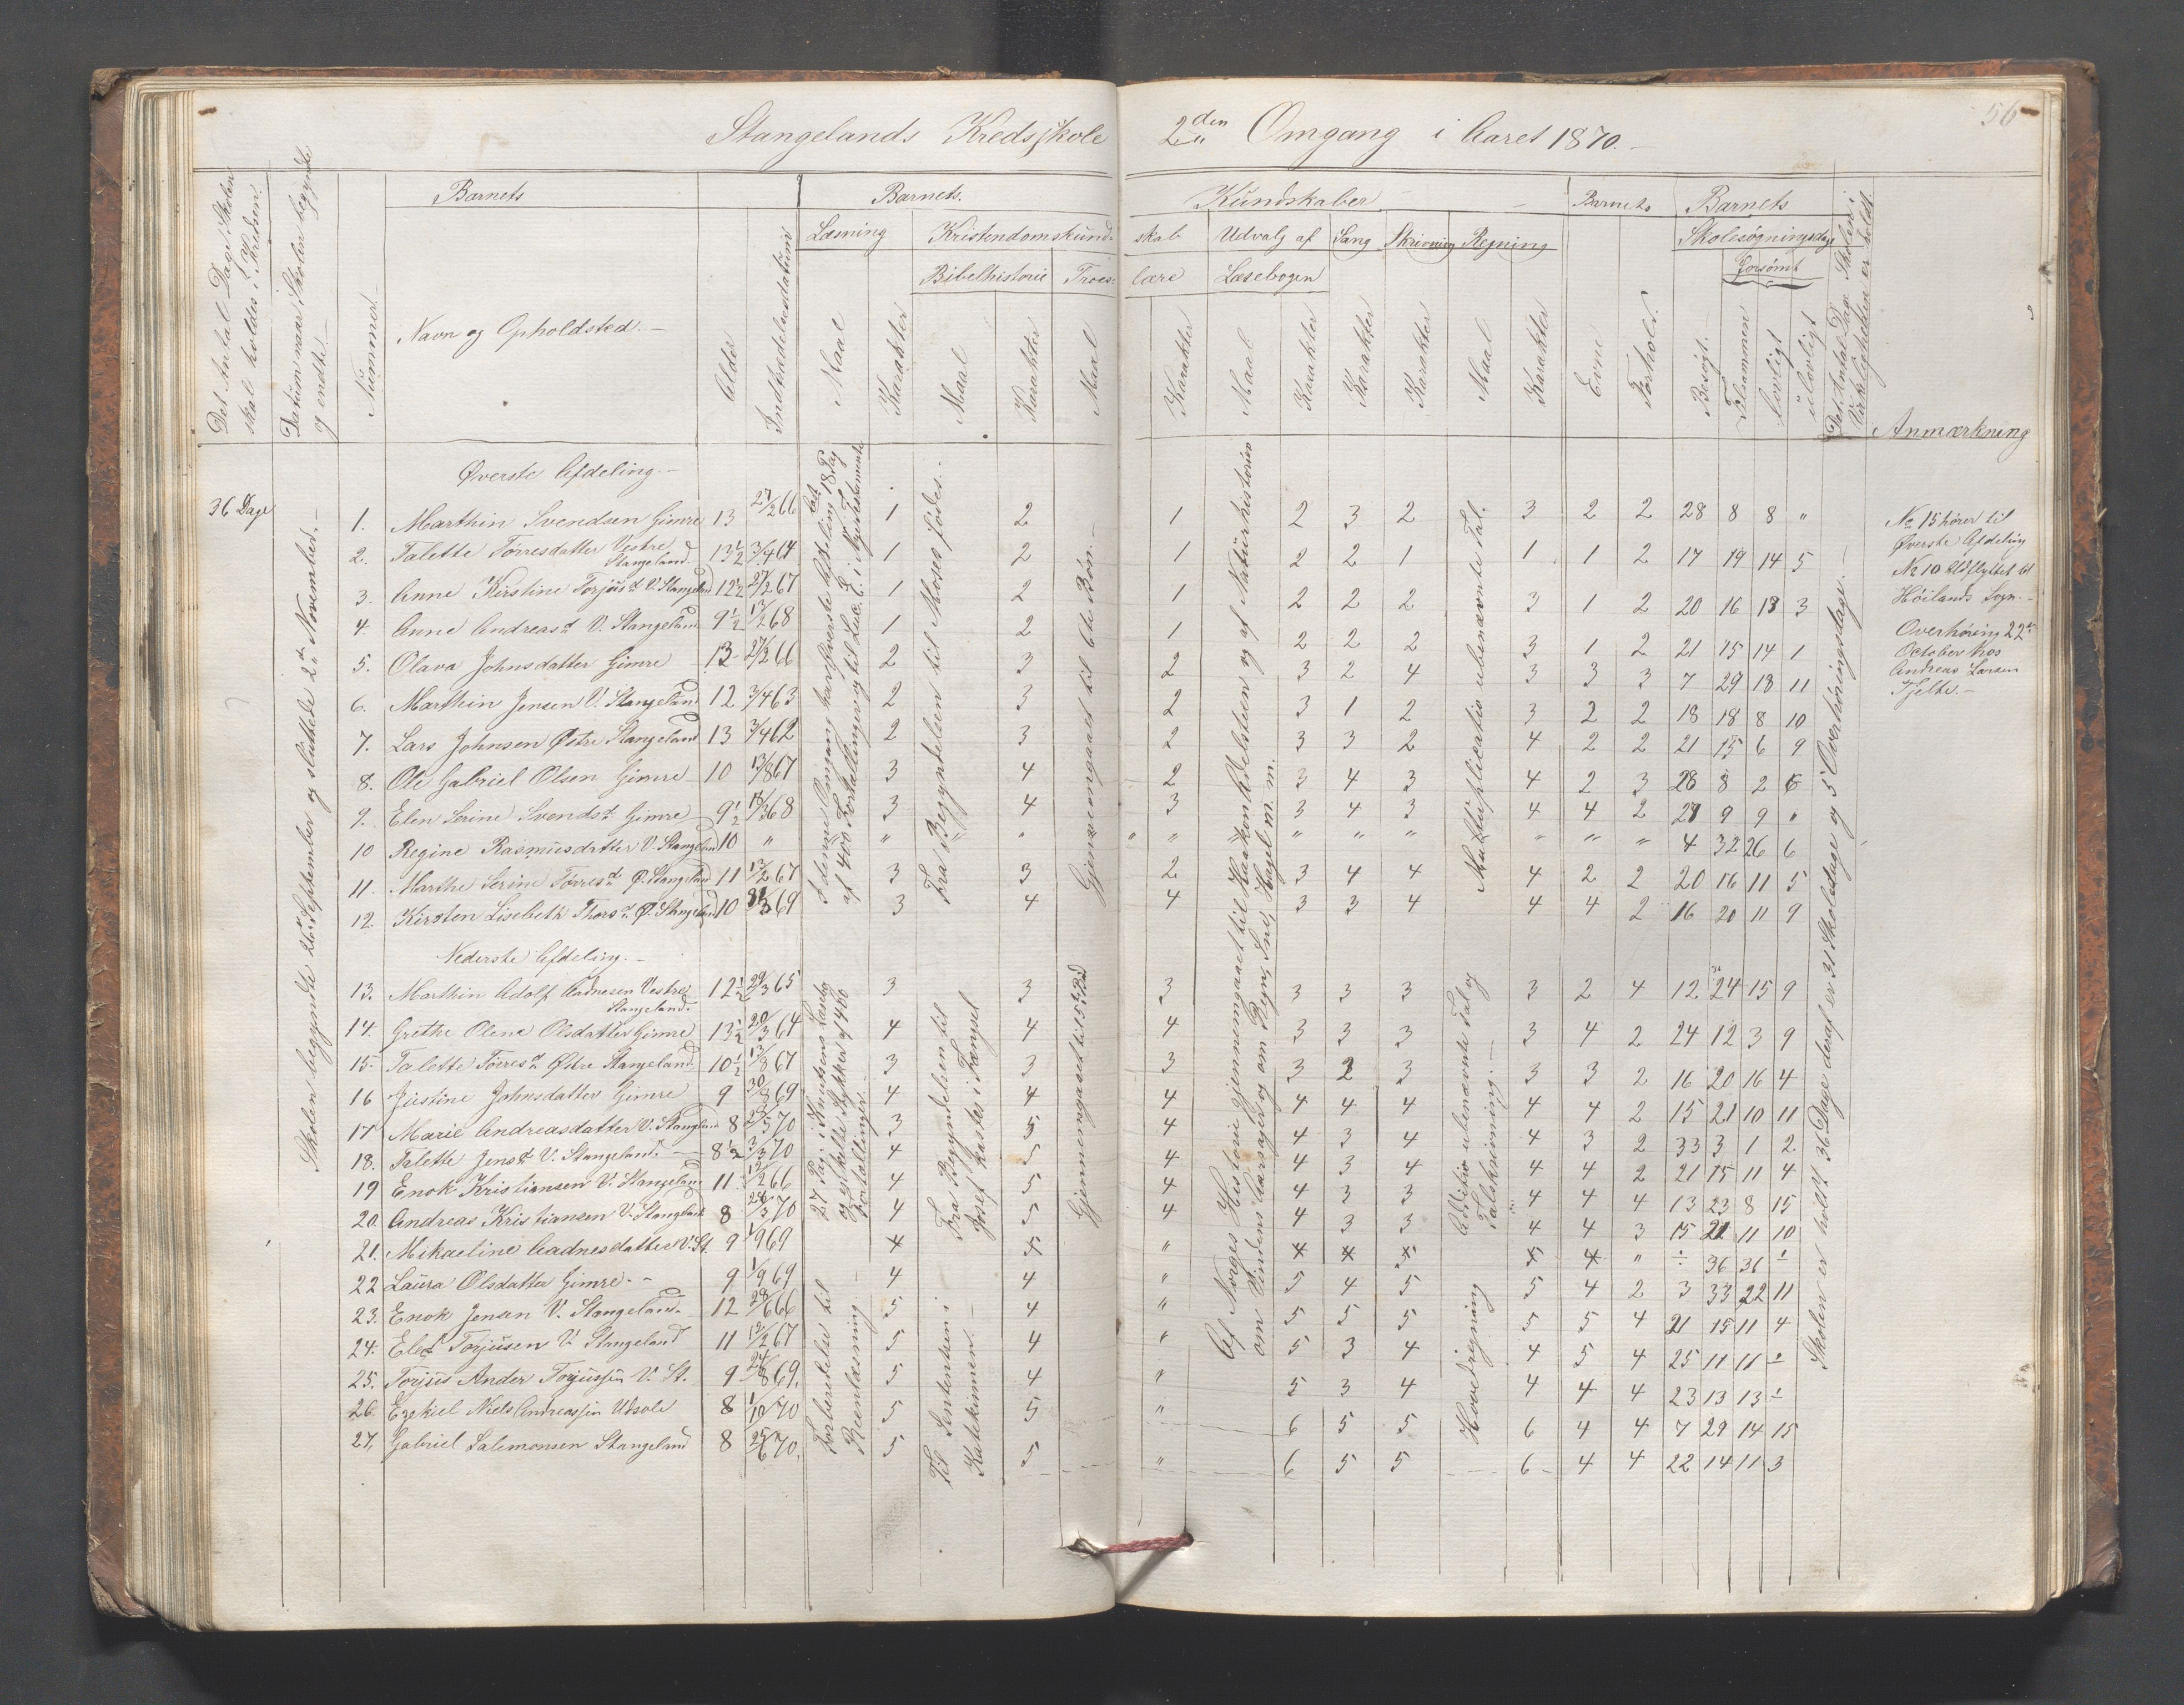 56
Stangelands Kredsskole 2den Omgang i Aaret 1870.
Det Antal Dage Skolen skal holdes i Kredsen.
Datum naar Skolen begyndte og endte.
Nummer.
Barnets
Navn og Opholdsted.
Alder
Indtrædelsesdatum
Barnets Kundskaber
Læsning
Maal
Karakter
Kristendomskundskab
Bibelhistorie
Maal
Karakter
Troeslære
Maal
Karakter
Udvalg af Læsebogen
Maal
Karakter
Sang
Karakter
Skrivning
Karakter
Regning
Maal
Karakter
Barnets
Evne
Forhold.
Barnets Skolesøgningsdage
Besøgt.
Forsømt
Tilsammen
Lovligt
ulovligt
Det Antal Dage Skolen i Virkeligheden er holdt.
Anmærkning
36 Dage
Skolen begyndte 26de September og sluttede 2den November.
Øverste Afdeling.
1. Marthin Svendsen Gimre 13 27/2 66 1 2 1 2 3 2 3 2 2 28 8 8 "
2. Talette Torresdatter Vestre Stangeland. 13½ 3/4 64 1 2 1 2 2 1 1 1 2 17 19 14 5
3. Anne Kirstine Torjusd. V. Stangeland 12½ 27/2 67 1 2 1 2 2 2 3 1 2 20 16 13 3
4. Anne Andreasd. V. Stangeland 9½ 13/2 68 1 2 1 2 2 2 3 1 2 21 15 14 1
5. Olava Johnsdatter Gimre 13 27/2 66 2 3 2 3 2 4 3 3 3 7 29 18 11
6. Marthin Jensen V. Stangeland 12 3/4 63 2 3 2 3 1 2 3 2 2 18 18 8 10
7. Lars Johnsen Østre Stangeland 13 3/4 62 2 3 2 3 3 2 4 2 2 21 15 6 9
8. Ole Gabriel Olsen Gimre 10 13/8 67 3 4 2 3 4 3 4 2 3 28 8 2 6
9. Elen Serine Svendsd. Gimre 9½ 18/3 68 3 4 3 3 4 3 4 4 2 27 9 9 "
10 Regine Rasmusdatter V. Stangeland 10 " " " " " " " " " " 4 32 26 6
11. Marthe Serine Torresd. Ø. Stangeland 11 13/2 67 3 3 2 3 4 4 4 2 2 20 16 11 5
12. Kirsten Lisebeth Thorsd. Ø. Stangeland 10 /3 69 3 4 4 3 3 4 4 4 2 16 20 11 9
Nederste Afdeling.
13. Marthin Adolf Aadnesen Vestre Stangeland. 12½ 29/3 65 3 3 3 3 3 3 3 2 4 12 24 15 9
14. Grethe Olene Olsdatter Gimre 13½ 20/3 64 4 4 4 3 3 3 3 4 2 24 12 3 9
15. Talette Torresd. Østre Stangeland 10½ 13/8 67 3 3 3 3 2 3 3 3 2 16 20 16 4
16 Justine Johnsdatter Gimre 9 30/8 69 4 4 4 4 4 4 4 4 2 15 21 10 11
17 Marie Andreasdatter V. Stangeland 8 /3 70 3 5 4 4 3 4 4 3 2 33 3 1 2
18. Talette Jensd. V. Stangeland. 8½ 3/3 70 4 5 4 4 3 4 4 4 2 21 15 11 4
19 Enok Kristiansen V. Stangeland 11 12/2 66 4 5 4 4 3 3 4 4 4 13 23 8 15
20. Andreas Kristiansen V. Stangeland 8 28/3 70 4 5 4 4 3 3 4 4 3 15 21 11 10
21. Mikaeline Aadnesdatter V. St. 9 1/9 69 4 4 " 4 4 4 4 4 " ÷ 36 36 ÷
22 Laura Olsdatter Gimre. 9 1/9 69 4 4 " 5 4 5 5 4 2 3 33 22 11
23. Enok Jensen V. Stangeland. 12 28/6 66 5 4 " 5 5 5 5 5 4 21 15 11 4
24. Elef Torjusen V. Stangeland 11 12/2 67 5 4 " 5 3 4 4 5 4 25 11 11 ÷
25. Torjus Ander Torjussen V. St. 9 24/8 69. 5 4 " 5 3 4 4 4 4 23 13 13 ÷
26. Ezekiel Niels Andreassen Udsole 8 1/10 70 5 5 " 6 5 5 6 4 4 7 29 14 15
27. Gabriel Salemonsen Stangeland 8 25/6 70. 5 5 " 6 5 5 6 4 4 22 14 11 3
I denne Omgang har Øverste Afdeling læst 18 Pag. af 400 Fortællinger og til Luc. E. i Nye Testamente
Fra Begyndelsen til Moses fødes.
Gjennemgaaet til 6te Bøn.
Af Norges Historie gjennemgaaet til Haakon Adelsteen og af Naturhistorien om Vindens Aarsager og om Regn, Sne, Hagel m. m.
Multiplicatio ubenævnte Tal.
27 Pag. i Knutsens Læsebog og enkelte Stykker af 400 Fortællinger.
Fra Begyndelsen til Josef kastes i Fængsel
Gjennemgaaet til 5te Bud
Additio ubenævnte Tal og Talskrivning.
Forberedelse til Reenlæsning
Til Sententsen i Katekismen.
Hovedregning
Skolen er holdt 36 Dage deraf er 31 Skoledage og 5 Overhøringsdage.
No 15 hører til
Øverste Afdeling
No 10 Udflyttet til
Høilands Sogn.
Overhøring 22de
October hos
Andreas Larsen
Tjelte.